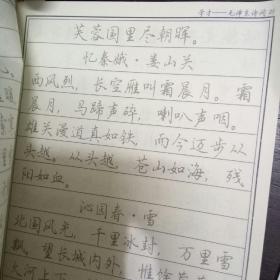 学才——毛泽东诗词
芙蓉国里尽朝晖。
忆秦娥·娄山关
西风烈，长空雁叫霜晨月。霜
晨月，马蹄声碎，喇叭声咽。
雄关漫道真如铁，而今迈步从
头越。从头越，苍山如海，残
阳如血。
沁园春·雪
北国风光，千里冰封，万里雪
飘。望长城内外，惟馀莽
大河上下